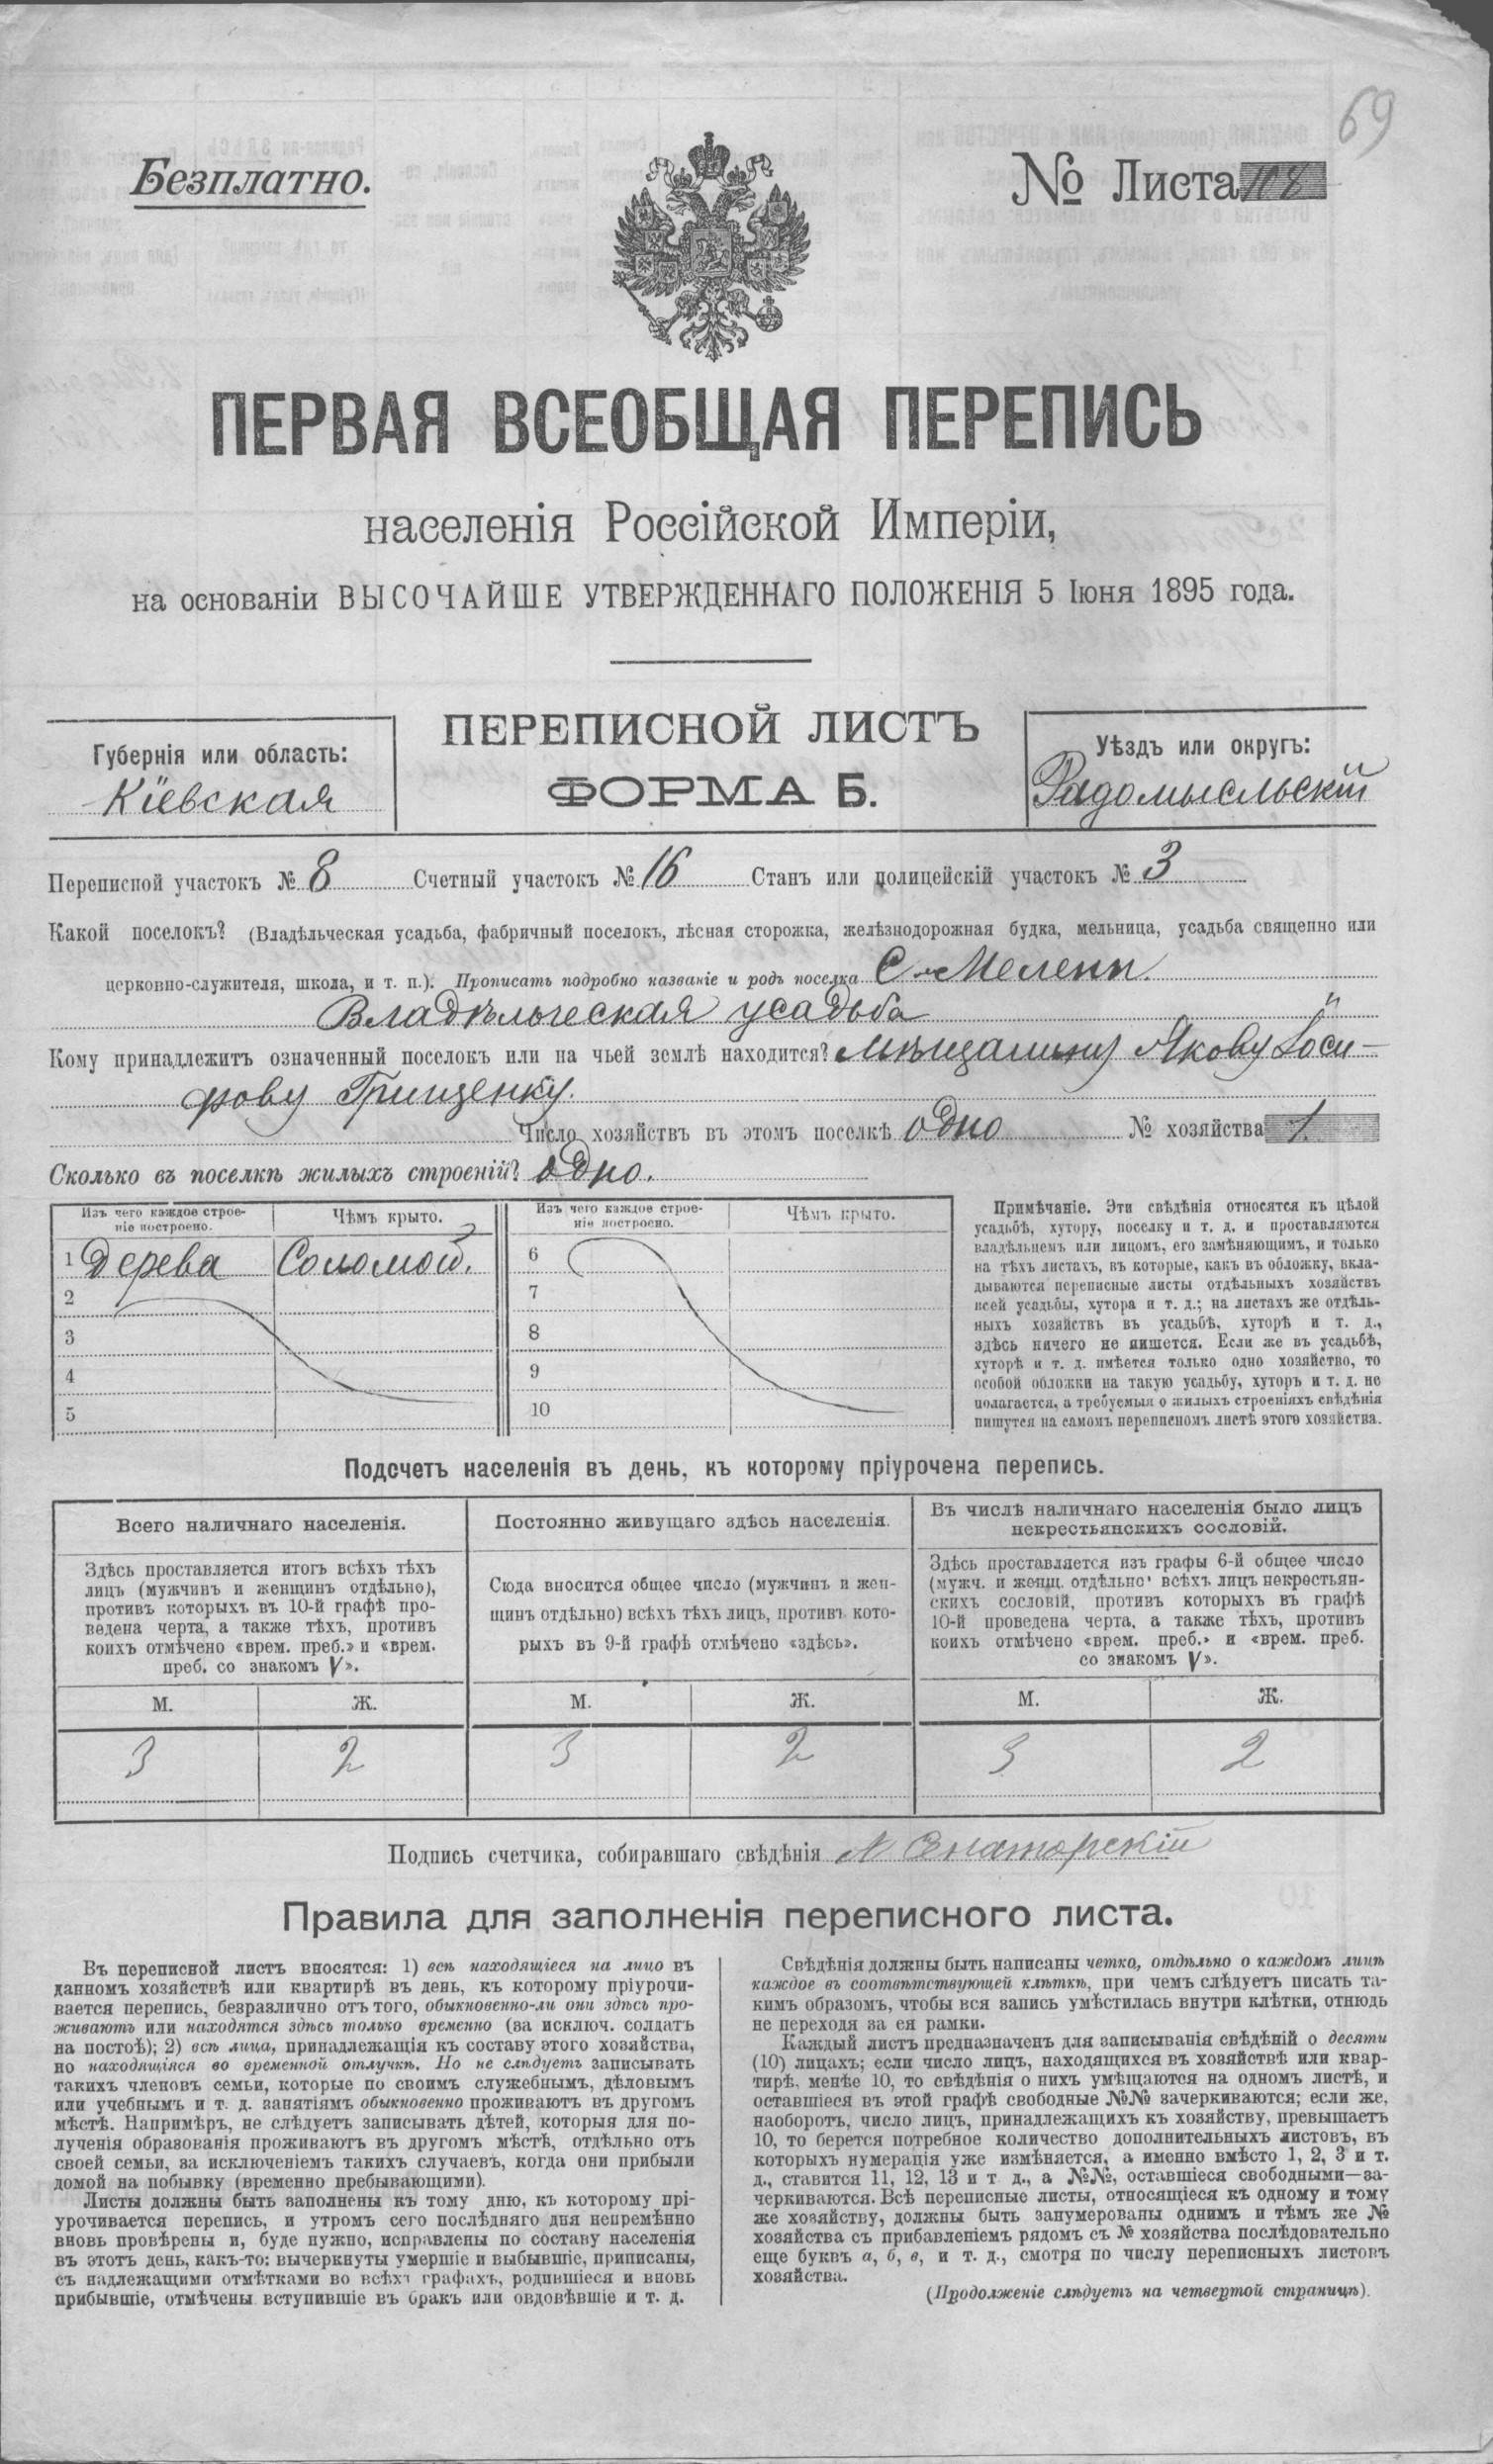 69
Безплатно.
№ Листа 108
ПЕРВАЯ ВСЕОБЩАЯ ПЕРЕПИСЬ
населенія Россійской Имперіи,
на основаніи ВЫСОЧАЙШЕ УТВЕРЖДЕННАГО ПОЛОЖЕНІЯ 5 Іюня 1895 года.
Губернія или область:
Кіевская
ПЕРЕПИСНОЙ ЛИСТЪ
ФОРМА Б.
Уѣздъ или округъ:
Радомысльскій
Переписной участокъ № 8 Счетный участокъ № 16 Станъ или полицейскій участокъ № 3
Какой поселокъ? (Владѣльческая усадьба, фабричный поселокъ, лѣсная сторожка, желѣзнодорожная будка, мельница, усадьба священно или
церковно-служителя, школа, и т. п.). Прописать подробно названіе и родъ поселка С. Мелени.
Владѣльческая усадьба
Кому принадлежитъ означенный поселокъ или на чьей землѣ находится? Мѣщанину Якову Іоси-
фову Грищенку.
Число хозяйствъ въ этомъ поселкѣ одно № хозяйства 1.
Сколько въ поселкѣ жилыхъ строеній? одно.
Изъ чего каждое строе-
ніе построено.
Чѣмъ крыто.
Изъ чего каждое строе-
ніе построено.
Чѣмъ крыто.
1 Дерева Соломой. 6
2 7
3 8
4 9
5 10
Примѣчаніе. Эти свѣдѣнія относятся къ цѣлой
усадьбѣ, хутору, поселку и т. д. и проставляются
владѣльцемъ или лицомъ, его замѣняющимъ, и только
на тѣхъ листахъ, въ которые, какъ въ обложку, вкла-
дываются переписные листы отдѣльныхъ хозяйствъ
всей усадьбы, хутора и т. д.; на листахъ же отдѣль-
ныхъ хозяйствъ въ усадьбѣ, хуторѣ и т. д.,
здѣсь ничего не пишется. Если же въ усадьбѣ,
хуторѣ и т. д. имѣется только одно хозяйство, то
особой обложки на такую усадьбу, хуторъ и т. д. не
полагается, а требуемыя о жилыхъ строеніяхъ свѣдѣнія
пишутся на самомъ переписномъ листѣ этого хозяйства.
Подсчетъ населенія въ день, къ которому пріурочена перепись.
Всего наличнаго населенія.
Здѣсь проставляется итогъ всѣхъ тѣхъ
лицъ (мужчинъ и женщинъ отдѣльно),
противъ которыхъ въ 10-й графѣ про-
ведена черта, а также тѣхъ, противъ
коихъ отмѣчено «врем. преб.» и «врем.
преб. со знакомъ V».
Постоянно живущаго здѣсь населенія.
Сюда вносится общее число (мужчинъ и жен-
щинъ отдѣльно) всѣхъ тѣхъ лицъ, противъ кото-
рыхъ въ 9-й графѣ отмѣчено «здѣсь».
Въ числѣ наличнаго населенія было лицъ
некрестьянскихъ сословій.
Здѣсь проставляется изъ графы 6-й общее число
(мужч. и женщ. отдѣльно) всѣхъ лицъ некрестьян-
скихъ сословій, противъ которыхъ въ графѣ
10-й проведена черта, а также тѣхъ, противъ
коихъ отмѣчено «врем. преб.» и «врем. преб.
со знакомъ V».
М. Ж. М. Ж. М. Ж.
3 2 3 2 3 2
Подпись счетчика, собиравшаго свѣдѣнія Сенаторскій
Правила для заполненія переписного листа.
Въ переписной листъ вносятся: 1) всѣ находящіеся на лицо въ
данномъ хозяйствѣ или квартирѣ въ день, къ которому пріурочи-
вается перепись, безразлично отъ того, обыкновенно-ли они здѣсь про-
живаютъ или находятся здѣсь только временно (за исключ. солдатъ
на постоѣ); 2) всѣ лица, принадлежащія къ составу этого хозяйства,
но находящіяся во временной отлучкѣ. Но не слѣдуетъ записывать
такихъ членовъ семьи, которые по своимъ служебнымъ, дѣловымъ
или учебнымъ и т. д. занятіямъ обыкновенно проживаютъ въ другомъ
мѣстѣ. Напримѣръ, не слѣдуетъ записывать дѣтей, которыя для по-
лученія образованія проживаютъ въ другомъ мѣстѣ, отдѣльно отъ
своей семьи, за исключеніемъ такихъ случаевъ, когда они прибыли
домой на побывку (временно пребывающими).
Листы должны быть заполнены къ тому дню, къ которому прі-
урочивается перепись, и утромъ сего послѣдняго дня непремѣнно
вновь провѣрены и, буде нужно, исправлены по составу населенія
въ этотъ день, какъ-то: вычеркнуты умершіе и выбывшіе, приписаны,
съ надлежащими отмѣтками во всѣхъ графахъ, родившіеся и вновь
прибывшіе, отмѣчены вступившіе въ бракъ или овдовѣвшіе и т. д.
Свѣдѣнія должны быть написаны четко, отдѣльно о каждомъ лицѣ
каждое въ соотвѣтствующей клѣткѣ, при чемъ слѣдуетъ писать та-
кимъ образомъ, чтобы вся запись умѣстилась внутри клѣтки, отнюдь
не переходя за ея рамки.
Каждый листъ предназначенъ для записыванія свѣдѣній о десяти
(10) лицахъ; если число лицъ, находящихся въ хозяйствѣ или квар-
тирѣ, менѣе 10, то свѣдѣнія о нихъ умѣщаются на одномъ листѣ, и
оставшіеся въ этой графѣ свободные №№ зачеркиваются; если же,
наоборотъ, число лицъ, принадлежащихъ къ хозяйству, превышаетъ
10, то берется потребное количество дополнительныхъ листовъ, въ
которыхъ нумерація уже измѣняется, а именно вмѣсто 1, 2, 3 и т.
д., ставится 11, 12, 13 и т д., а №№, оставшіеся свободными—за-
черкиваются. Всѣ переписные листы, относящіеся къ одному и тому
же хозяйству, должны быть занумерованы однимъ и тѣмъ же №
хозяйства съ прибавленіемъ рядомъ съ № хозяйства послѣдовательно
еще буквъ а, б, в, и т. д., смотря по числу переписныхъ листовъ
хозяйства.
(Продолженіе слѣдуетъ на четвертой страницѣ).